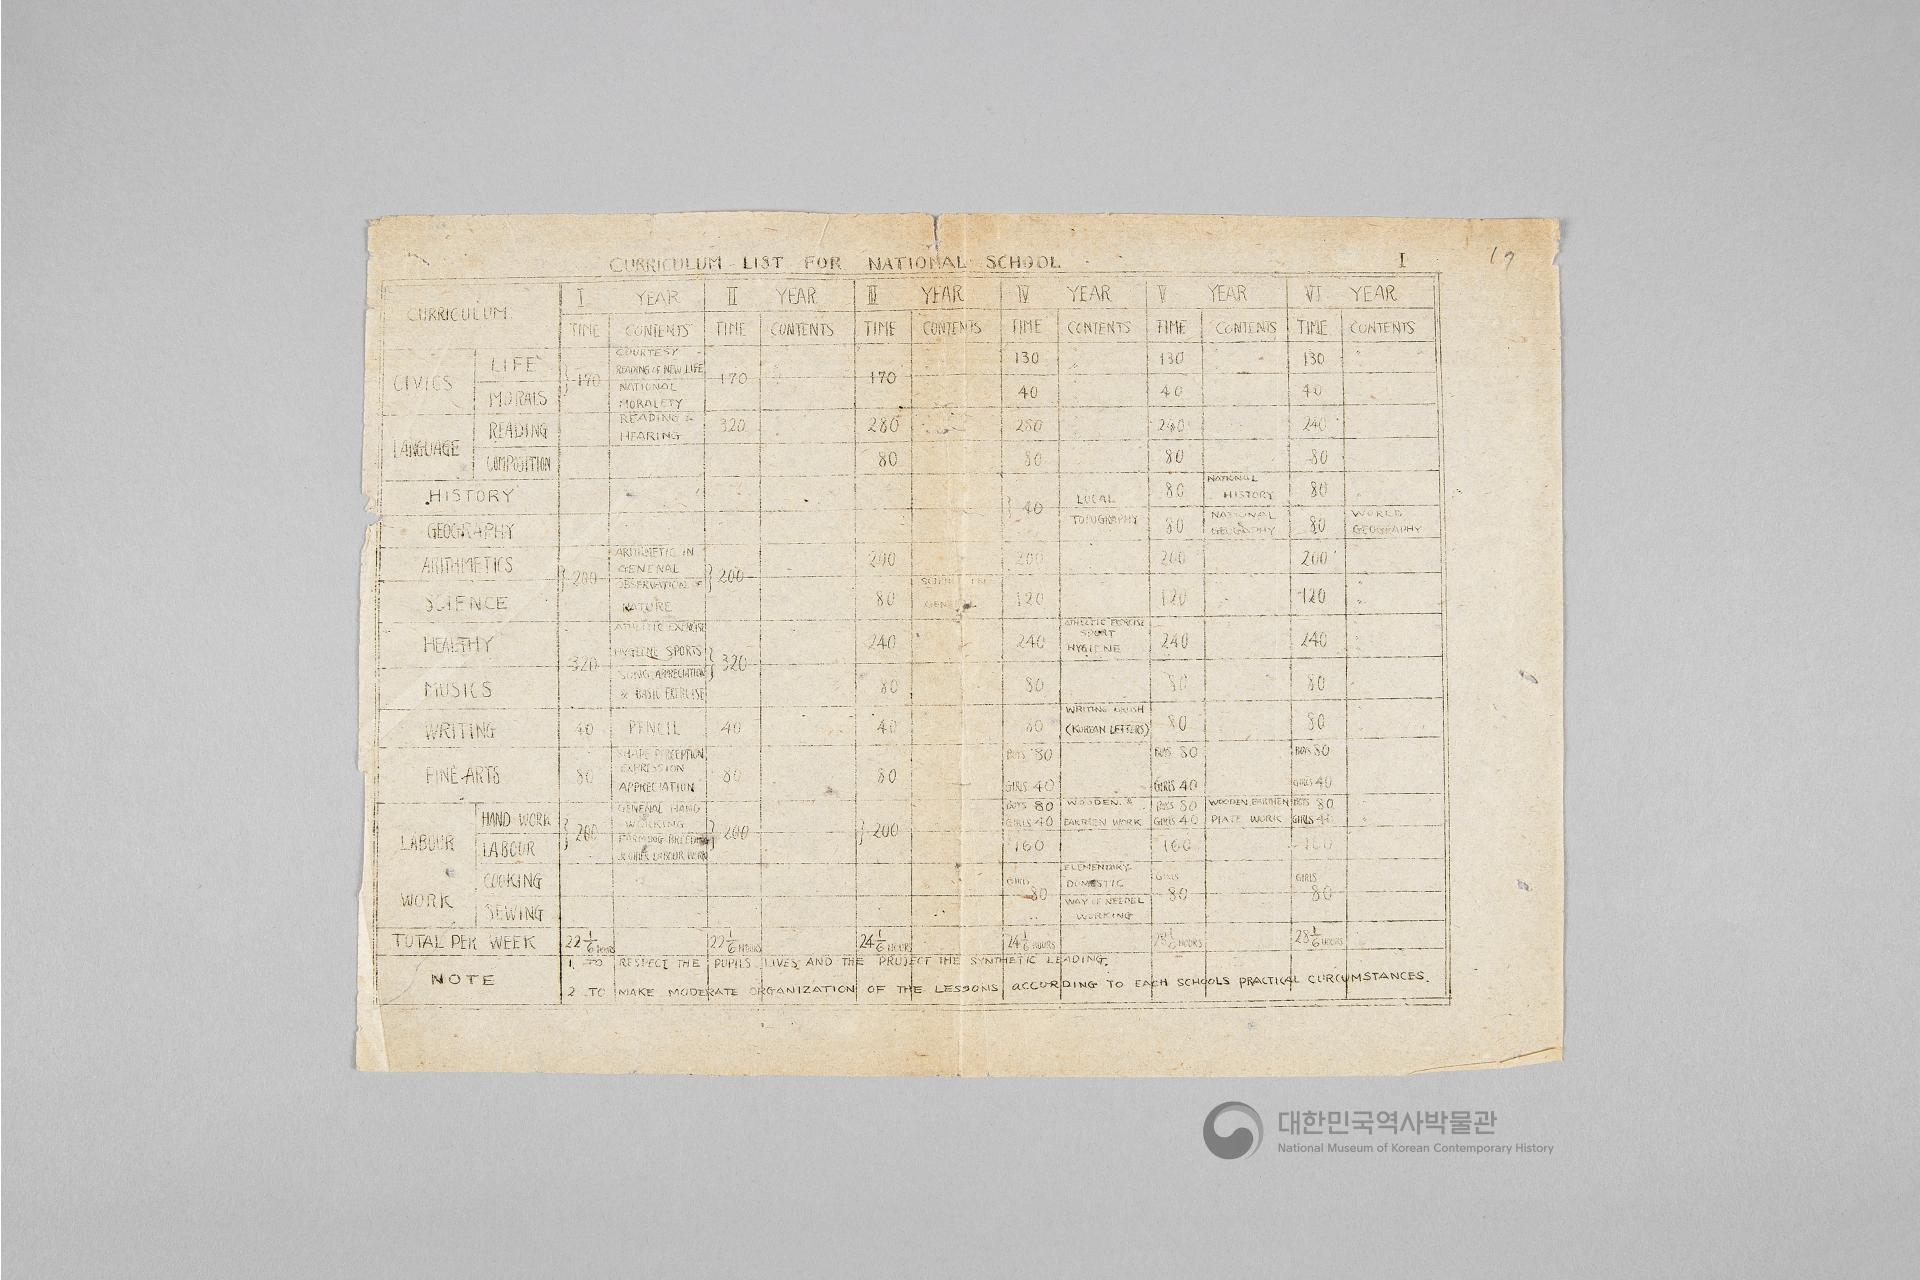 CURRICULUM LIST FOR NATIONAL SCHOOL I 17
CURRICULUM I YEAR II YEAR III YEAR IV YEAR V YEAR VI YEAR
TIME CONTENTS TIME CONTENTS TIME CONTENTS TIME CONTENTS TIME CONTENTS TIME CONTENTS
CIVICS LIFE 170 COURTESY READING OF NEW LIFE 170 170 130 130 130
MORALS NATIONAL MORALETY 40 40 40
LANGUAGE READING READING & HEARING 320 280 280 240 240
COMPOSITION 80 80 80 80
HISTORY 40 LOCAL TOPOGRAPHY 80 NATIONAL HISTORY 80
GEOGRAPHY 80 NATIONAL GEOGRAPHY 80 WORLD GEOGRAPHY
ARITHMETICS 200 ARITHMETIC IN GENENAL 200 200 200 200 200
SCIENCE OBSERVATION OF NATURE 80 SCIENCE IN GENERAL 120 120 120
HEALTHY 320 ATHLETIC EXERCISE HYGIENE SPORTS 320 240 240 ATHLETIC EXERCISE SPORT HYGIENE 240 240
MUSICS SONG APPRECIATION & BASIC EXERCISE 80 80 80 80
WRITING 40 PENCIL 40 40 80 WRITING BRUSH (KOREAN LETTERS) 80 80
FINE ARTS 80 SHAPE PERCEPTION EXPRESSION APPRECIATION 80 80 BOYS 80 GIRLS 40 BOYS 80 GIRLS 40 BOYS 80 GIRLS 40
LABOUR WORK HAND WORK 200 GENENAL HAND WORKING 200 200 BOYS 80 GIRLS 40 WOODEN & EARTHEN WORK BOYS 80 GIRLS 40 WOODEN EARTHEN PLATE WORK BOYS 80 GIRLS 40
LABOUR & OTHER LABOUR WORK 160 160 160
COOKING GIRLS 80 ELEMENTARY DOMESTIC GIRLS 80 GIRLS 80
SEWING WAY OF NEEDEL WORKING
TOTAL PER WEEK 22 1/6 HOURS 22 1/6 HOURS 24 1/6 HOURS 24 1/6 HOURS 28 1/6 HOURS 28 1/6 HOURS
NOTE 1. TO RESPECT THE PUPILS LIVES AND THE PROJECT THE SYNTHETIC LEADING.
2 TO MAKE MODERATE ORGANIZATION OF THE LESSONS ACCORDING TO EACH SCHOOLS PRACTICAL CURCUMSTANCES.
대한민국역사박물관
National Museum of Korean Contemporary History